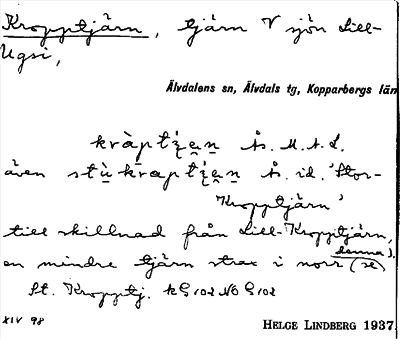 Kropptjärn, tjärn V sjön Lill-
Ugsi,
Älvdalens sn, Älvdals tg, Kopparbergs län
kràpti̯ẹṇ Ås. M.A.L.
även stùkrapti̯ẹṇ Ås. id. 'Stor-
Kropptjärn'
till skillnad från Lill-Kropptjärn,
en mindre tjärn strax i norr (se denna).
St. Kropptj.
XIV 98
HELGE LINDBERG 1937.